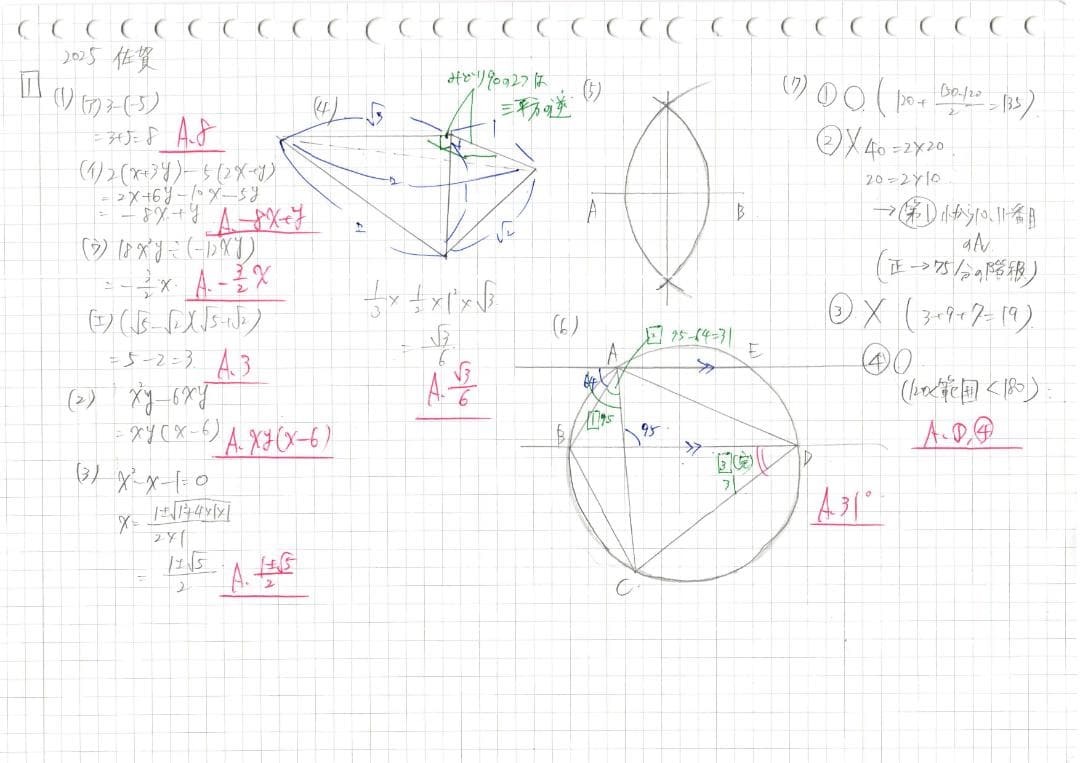 2025 佐賀
1
(1) (ア) 3-(-5)
= 3+5=8 A.8
(イ) 2(x+3y)-5(2x+y)
= 2x+6y-10x-5y
= -8x+y A.-8x+y
(ウ) 18x²y÷(-12xy)
= -3/2 x. A.-3/2 x
(エ) (√5-√2)(√5+√2)
= 5-2=3. A.3
(2) x²y-6xy
= xy(x-6) A.xy(x-6)
(3) x²-x-1=0
x= 1±√1²+4×1×1 / 2×1
= 1±√5 / 2 A. 1±√5 / 2
(4)
みどり90の2つは
三平方の逆
√3
1
2
2
√2
1/3 × 1/2 × 1² × √3
= √3/6
A. √3/6
(5)
A B
(6)
2 95-64=31
A E
64
1 95
95
B D
3(完)
31
C
A.31°
(7) ① ○ (120+ 150-120 / 2 =135)
② × 40=2×20
20=2×10
→ 第1 小から10、11番目
のAv
(正→75分の階級)
③ × (3+9+7=19)
④ ○
(120≤範囲<180)
A.①,④